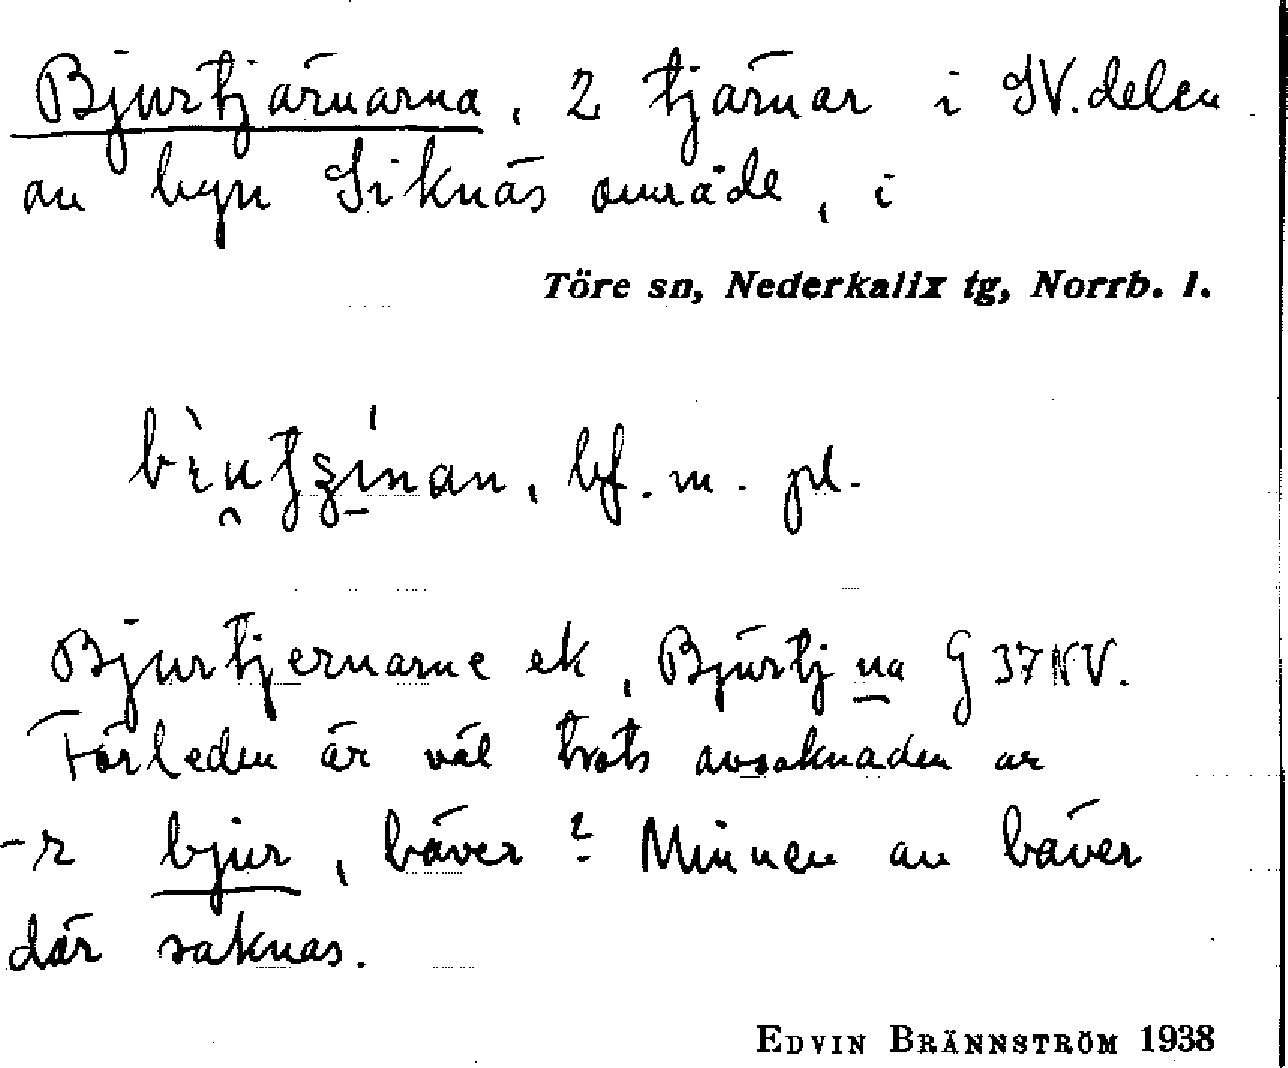 Bjurtjärnarna, 2 tjärnar i SV.delen
av byn Siknäs område, i
Töre sn, Nederkalix tg, Norrb. l.
bf. m. pl.
Bjurtjernarne ek, Bjurtj na G 37 NV.
Förleden är väl trots avsaknaden av
-r bjur, bäver? Minnen av bäver
där saknas.
EDVIN BRÄNNSTRÖM 1938